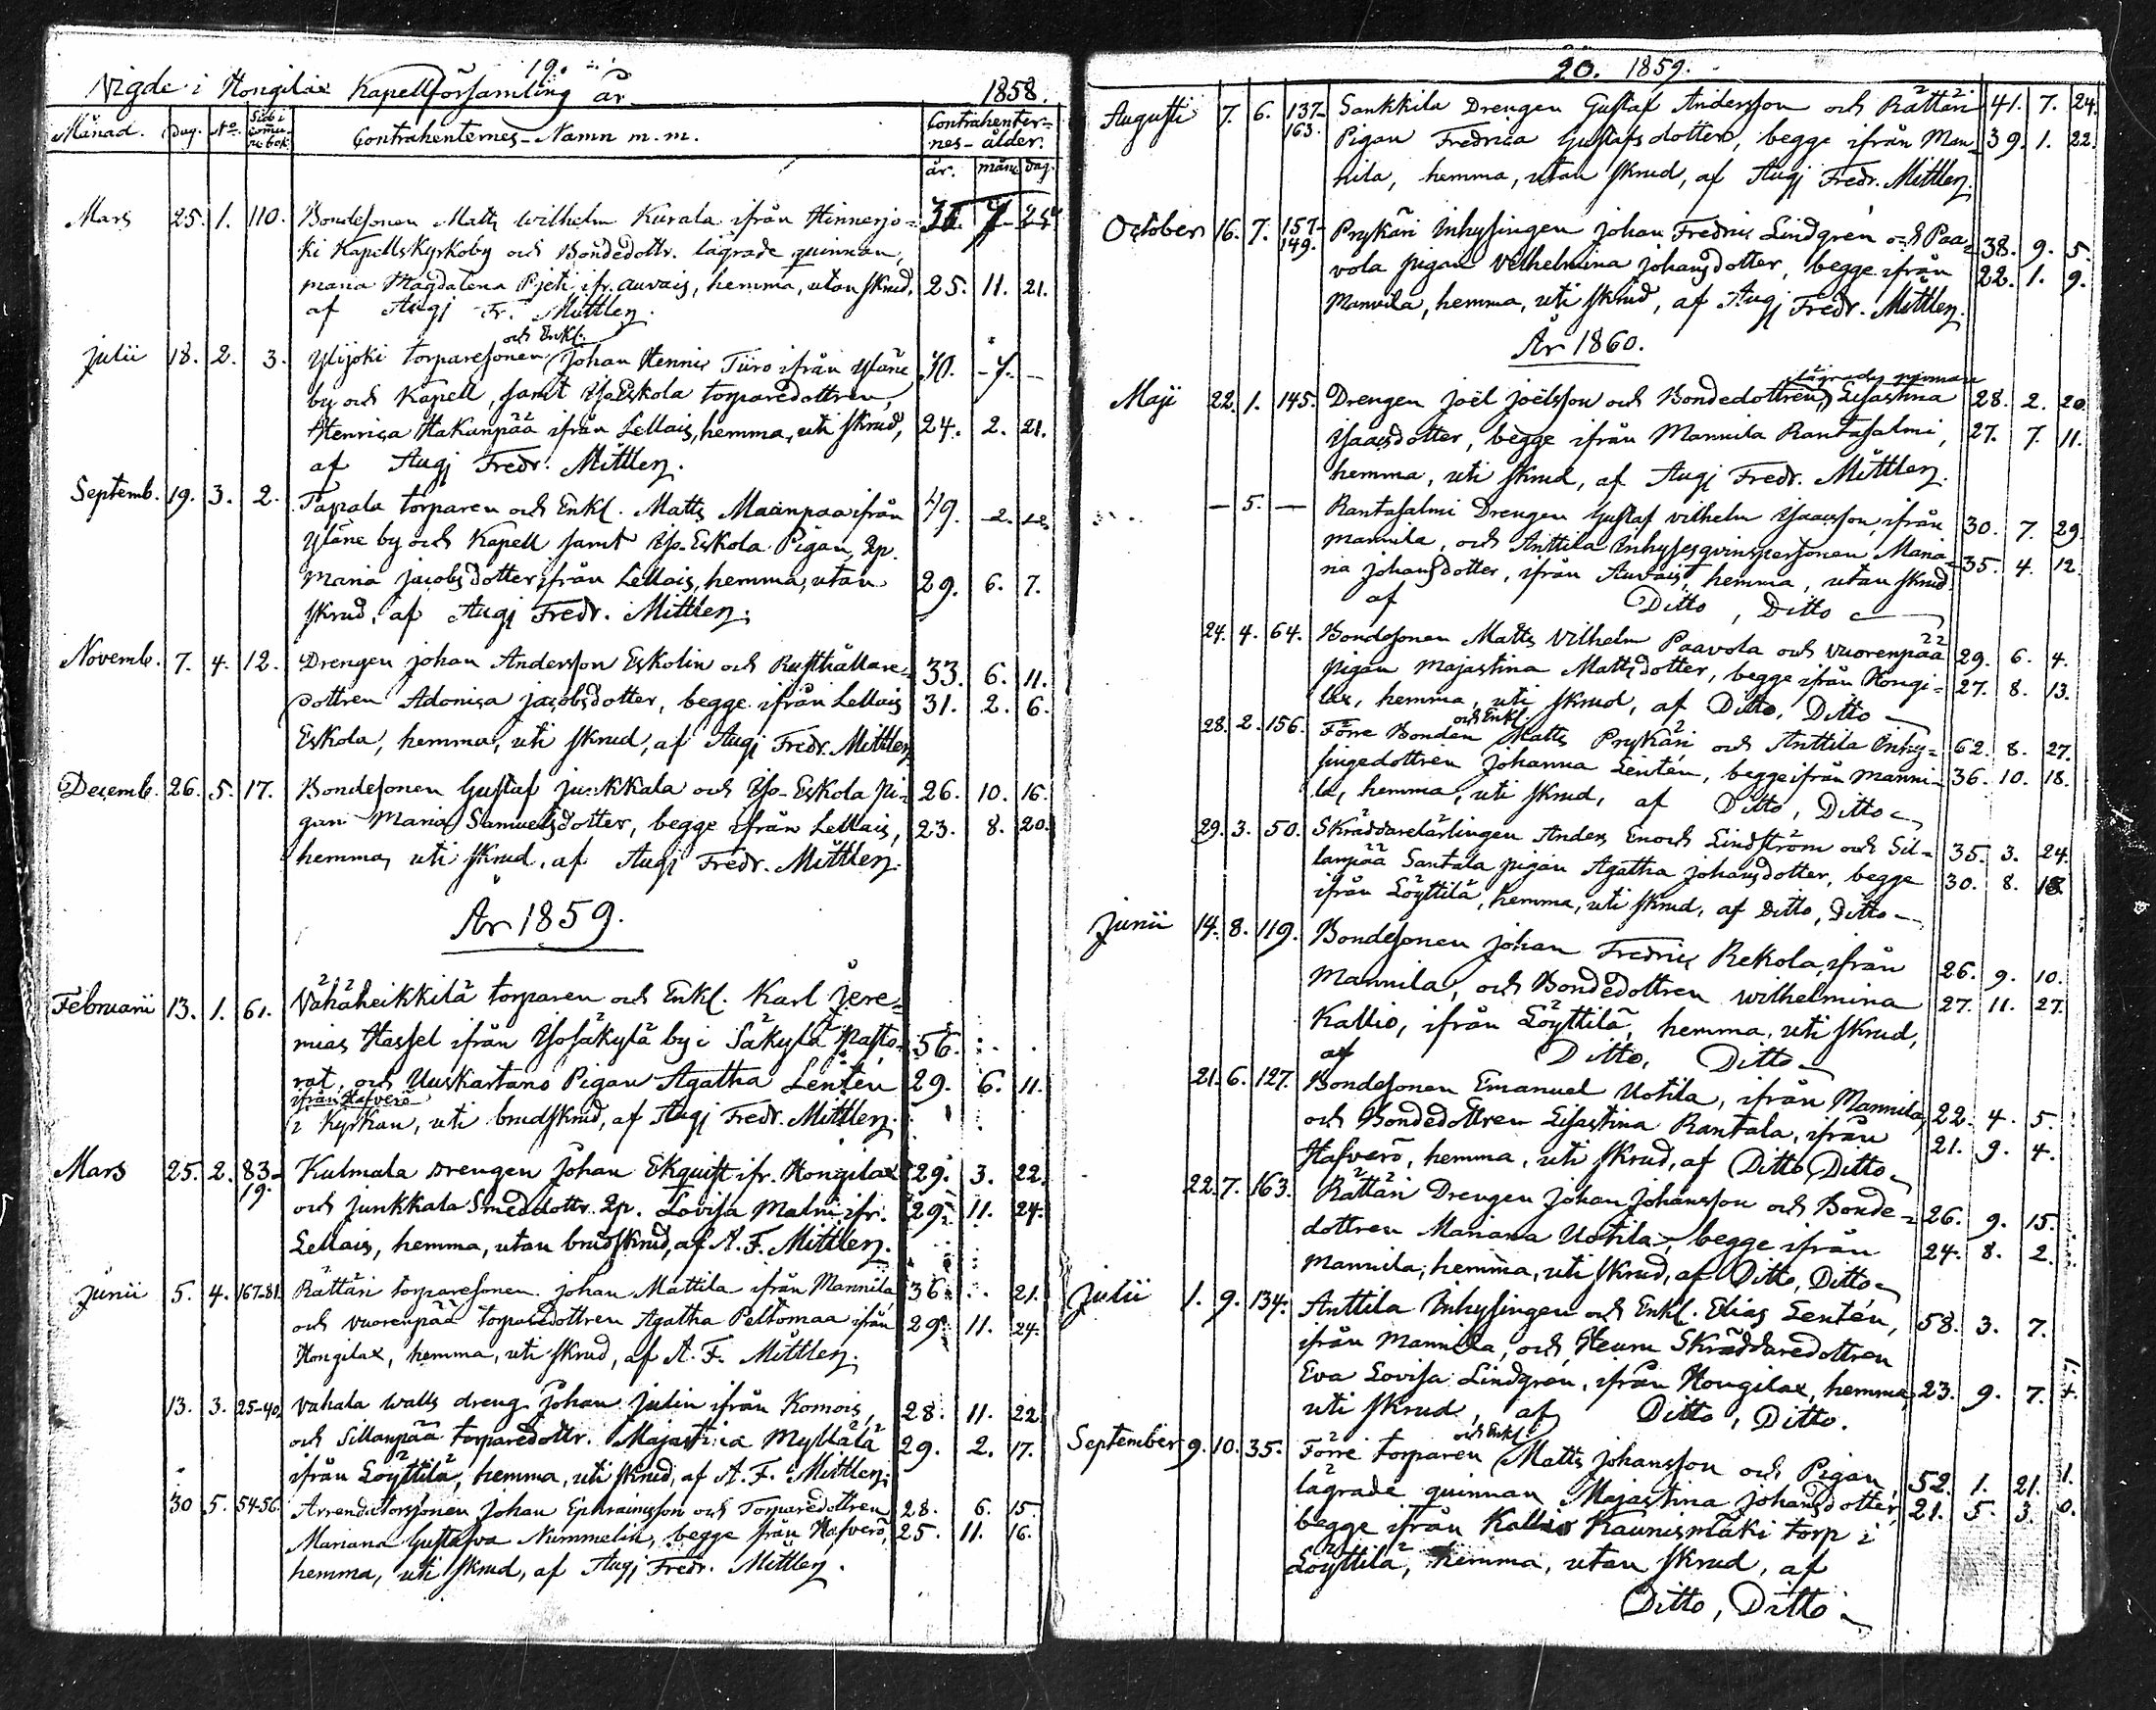 19.
Vigde i Hongilax Kapellförsamling år 1858.
Månad. Dag. No. Sid i Comu-ne bok Contrahenternes-Namn m.m. Contrahenter-nes-ålder.
år. mån. dag.
Mars 25. 1. 110. Bondesonen Matts Wilhelm Kurala ifrån Hinnerjo-
ki Kapells Kyrkoby och Bondedottr. lägrade quinnan,
Maria Magdalena Pjeti ifr. Auvais, hemma, utan skrud, 25. 11. 21.
af Augj Fr. Mittler.
Julii 18. 2. 3. Ylijoki torparesonen och Enkl. Johan Hennis Tiiro ifrån Yläne 40. - 7. -
by och Kapell, samt Iso Eskola torparedottren,
Henrica Hakanpää ifrån Lellais, hemma, uti skrud, 24. 2. 21.
af Augj Fredr. Mittler.
Septemb. 19. 3. 2. torparen och Enkl. Matts Maanpaa ifrån 49. 2.
Yläne by och Kapell samt Iso-Eskola Pigan, Qp.
Maria Jacobsdotter ifrån Lellais, hemma, utan 29. 6. 7.
skrud, af Augj Fredr. Mittler.
Novemb. 7. 4. 12. Drengen Johan Andersson Eskolin och Rusthållare- 33. 6. 11.
dottren Adonica Jacobsdotter, begge ifrån Lellais 31. 2. 6.
Eskola, hemma, uti skrud, af Augj Fredr. Mittler
Decemb. 26. 5. 17. Bondesonen Gustaf Junkkala och Iso-Eskola Pi- 26. 10. 16.
gan Maria Samuelsdotter, begge ifrån Lellais, 23. 8. 20.
hemma, uti skrud, af Augj Fredr. Mittler.
År 1859.
Februarii 13. 1. 61. Vähäheikkilä torparen och Enkl. Karl Jere-
mias Hassel ifrån Isosäkylä by i Säkylä Pasto- 56.
rat, och Uuskartano Pigan Agatha Lentén 29. 6. 11.
ifrån Hafverö
i Kyrkan, uti brudskrud, af Augj Fredr. Mittler.
Mars 25. 2. 83- Kulmala Drengen Johan Ekquist ifr. Hongilax 29. 3. 22.
19. och Junkkala Smeddottr. Qp. Lovisa Malm ifr. 29. 11. 24.
Lellais, hemma, utan brudskrud, af A. F. Mittler.
Junii 5. 4. 167-81. Rättäri torparesonen Johan Mattila ifrån Mannila 36. 21.
och Vuorenpää torparedottren Agatha Peltomaa ifrån 29. 11. 24.
Hongilax, hemma, uti skrud, af A. F. Mittler.
13. 3. 25-40. Vahala walls dreng Johan Julin ifrån Komois, 28. 11. 22
och Sillanpää torparedottr. Majastina Myllälä 29. 2. 17.
ifrån Löyttilä, hemma, uti skrud, af A. F. Mittler.
30 5. 54-56. Arrendatorsonen Johan Ephraimsson och Torparedottren 28. 6. 15.
Mariana Gustafva Nummelin, begge från Hafverö, 25. 11. 16.
hemma, uti skrud, af Augj Fredr. Mittler.
20. 1859.
Augusti 7. 6. 137- Sankkila Drengen Gustaf Andersson och Rättäri 41. 7. 24.
163. Pigan Fredrica Gustafsdotter, begge ifrån Man- 39. 1. 22.
nila, hemma, utan skrud, af Augj Fredr. Mittler.
October 16. 7. 157- Prykäri Inhysingen Johan Fredric Lindgrén och Paa- 38. 9. 5.
149. vola pigan Vilhelmina Johansdotter, begge ifrån 22. 1. 9.
Mannila, hemma, uti skrud, af Augj Fredr. Mittler.
År 1860.
Maji 22. 1. 145. Drengen Joël Joëlsson och Bondedottren, lägrade qvinnan Lisastina 28. 2. 20.
Isaacsdotter, begge ifrån Mannila Rantasalmi, 27. 7. 11.
hemma, uti skrud, af Augj Fredr. Mittler.
- 5. - Rantasalmi Drengen Gustaf Vilhelm Isaacsson, ifrån 30. 7. 29
Mannila, och Anttila Inhysesqvinspersonen Maria-
na Johansdotter, ifrån Auvais, hemma, utan skrud. 35. 4. 12.
af Ditto, Ditto
24. 4. 64. Bondesonen Matts Vilhelm Paavola och Vuorenpää 29. 6. 4.
Pigan Majastina Mattsdotter, begge ifrån Hongi- 27. 8. 13.
lax, hemma, uti skrud, af Ditto, Ditto
28. 2. 156. Förre Bonden och Enkl. Matts Prykäri och Anttila Inhy- 62. 8. 27.
singedottren Johanna Lentén, begge ifrån Manni- 36. 10. 18.
la, hemma, uti skrud, af Ditto, Ditto
29. 3. 50. Skräddarelärlingen Anders Enoch Lindström och Sil- 35. 3. 24.
lanpää Santala pigan Agatha Johansdotter, begge 30. 8. 18.
ifrån Löyttilä, hemma, uti skrud, af Ditto, Ditto
Junii 14. 8. 119. Bondesonen Johan Fredric Rekola, ifrån 26. 9. 10.
Mannila, och Bondedottren Wilhelmina 27. 11. 27.
Kallio, ifrån Löyttilä, hemma, uti skrud,
af Ditto, Ditto
21. 6. 127. Bondesonen Emanuel Uotila, ifrån Mannila, 22. 4. 5.
och Bondedottren Lisastina Rantala, ifrån 21. 9. 4.
Hafverö, hemma, uti skrud, af Ditto, Ditto
22. 7. 163. Rättäri Drengen Johan Johansson och Bonde- 26. 9. 15.
dottren Mariana Uotila, begge ifrån 24. 8. 2.
Mannila, hemma, uti skrud, af Ditto, Ditto
Julii 1. 9. 134. Anttila Inhysingen och Enkl. Elias Lentén, 58. 3. 7.
ifrån Mannila, och Heurn Skräddaredottren
Eva Lovisa Lindgrén, ifrån Hongilax, hemma, 23. 9. 7.
uti skrud, af Ditto, Ditto.
September 9. 10. 35. Förre torparen och Enkl. Matts Johansson och Pigan, 52. 1. 21.
lägrade quinnan Majastina Johansdotter, 21. 5. 3.
begge ifrån Kallio Kaunismäki torp i
Löyttilä, hemma, utan skrud, af
Ditto, Ditto